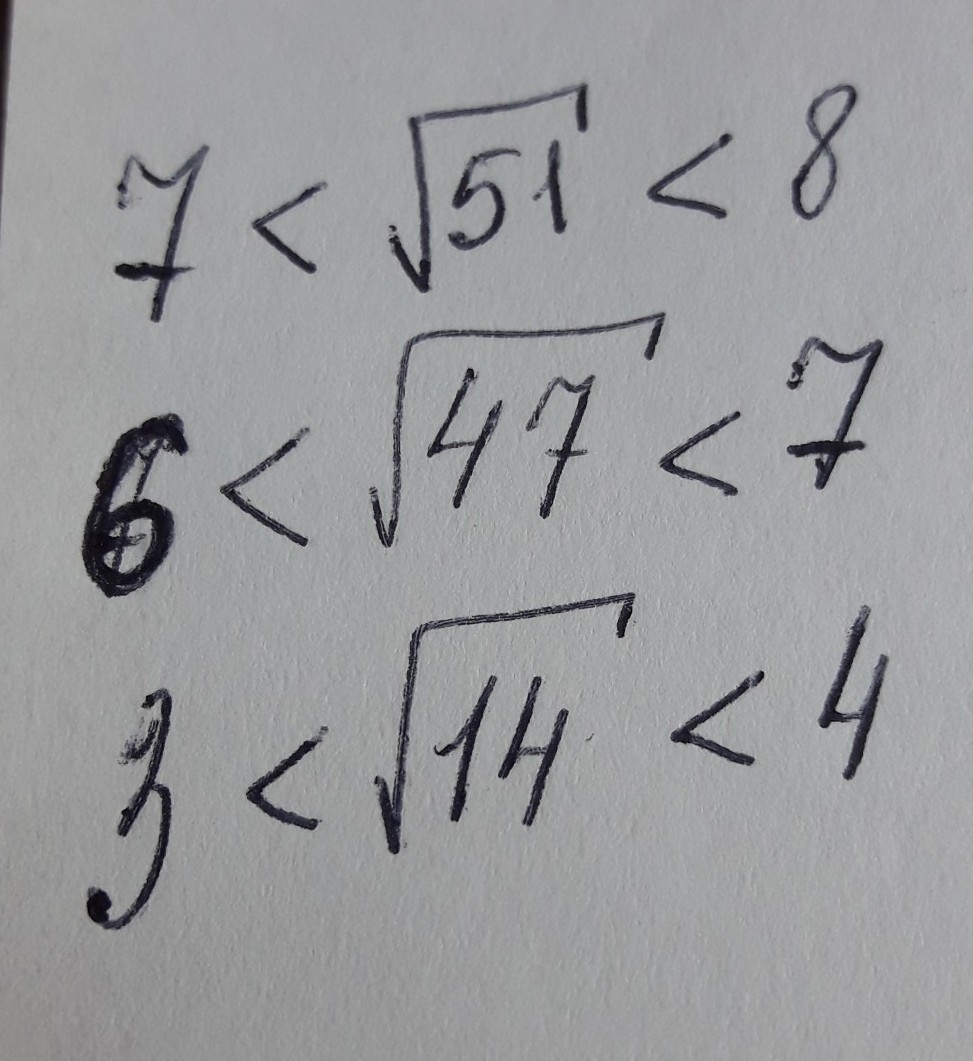 7 < √51 < 8
6 < √47 < 7
3 < √14 < 4